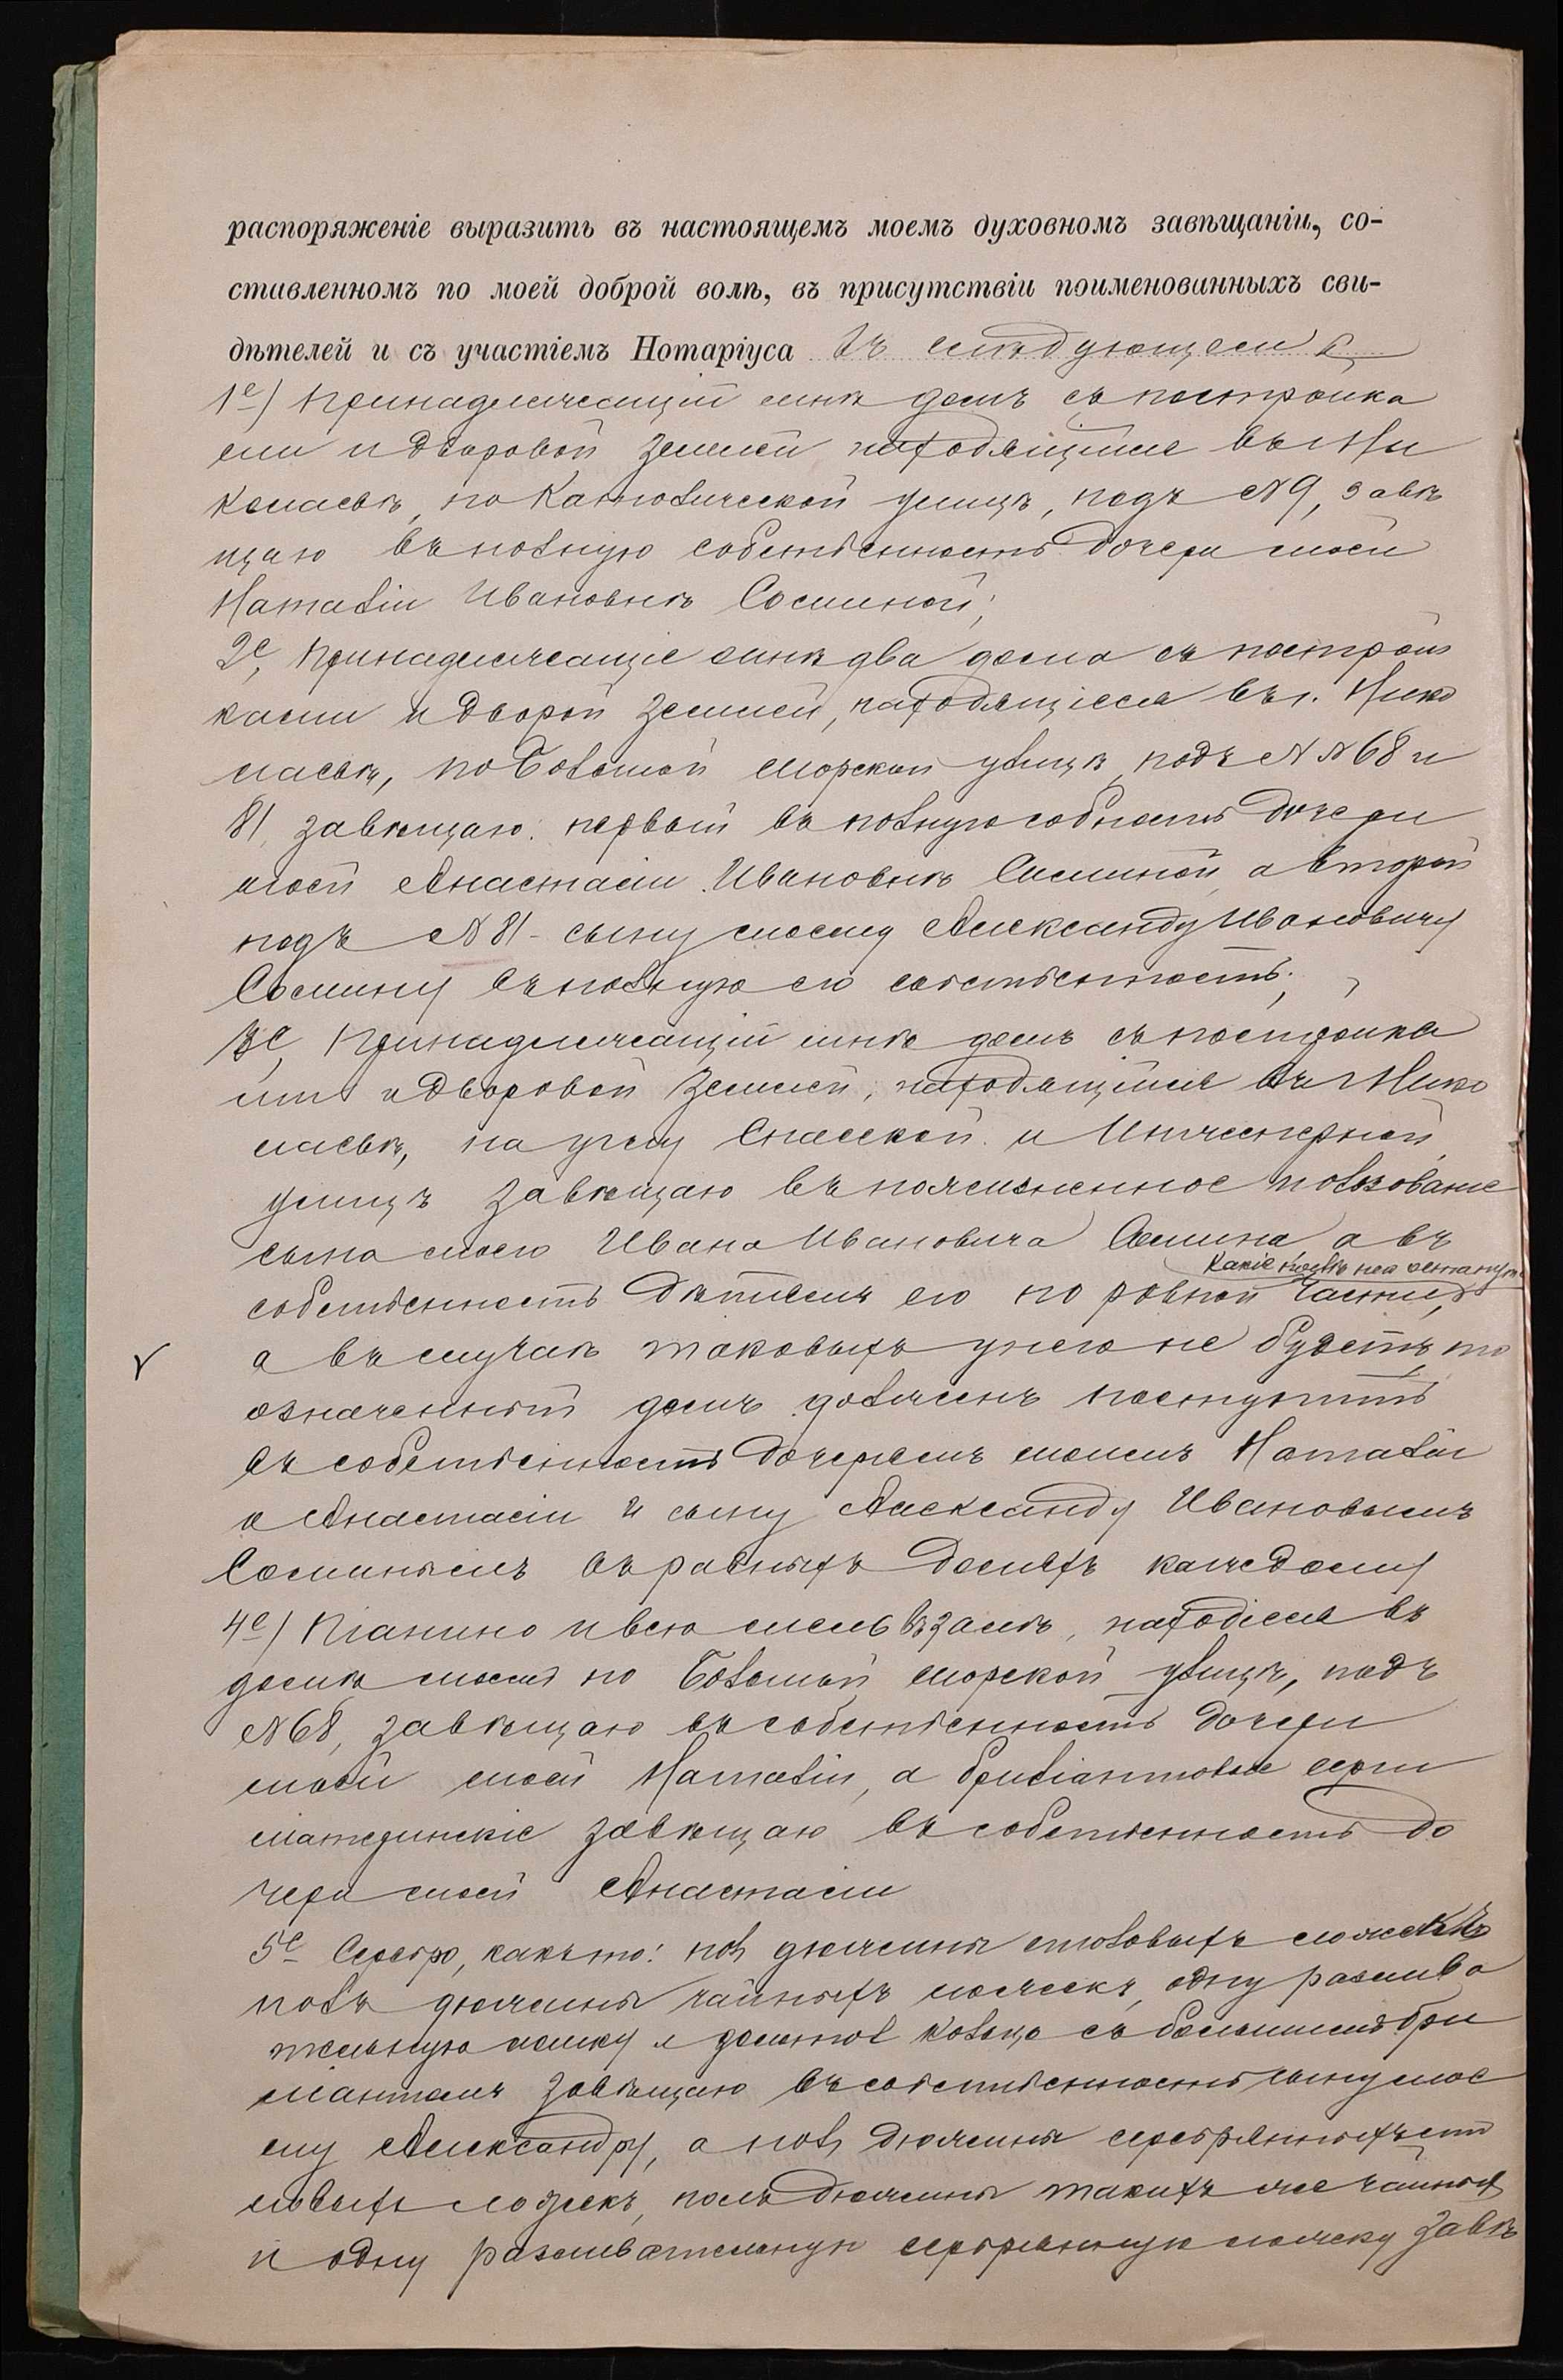 распоряженіе выразить въ настоящемъ моемъ духовномъ завѣщаніи, со-
ставленномъ по моей доброй волѣ, въ присутствіи поименованныхъ сви-
дѣтелей и съ участіемъ Нотаріуса въ слѣдующемъ:
1е) Принадлежащій мнѣ домъ съ постройка
ми и дворовой землей находящійся въ г. Ни
колаевѣ, по Католической улицѣ, подъ №9, завѣ
щаю въ полную собственность дочери моей
Наталіи Ивановнѣ Соминой;
2е, Принадлежащіе мнѣ два дома съ построй
ками и дворой землей, находящіеся въ г. Нико
лаевѣ, по Большой Морской улицѣ, подъ №№68 и
81, завѣщаю: первый въ полную собность дочери
моей Анастасіи Ивановнѣ Соминой, а второй
подъ №81 - сыну моему Александу Ивановичу
Сомину въ полную его собственность;
3е, Принадлежащій мнѣ домъ съ постройка
ми и дворовой землей, находящійся въ г. Нико
лаевѣ, на углу Спасской и Инженерной
улицъ завѣщаю въ пожизненное пользованіе
сына моего Ивана Ивановича Сомина, а въ
какіе послѣ нея останутся
собственность дѣтямъ его по ровной части,
а въ случаѣ таковыхъ у него не будетъ, то
означенный домъ долженъ поступить
въ собственность дочерямъ моимъ Наталіи
и Анастасіи и сыну Александу Ивановымъ
Соминымъ въ равныхъ доляхъ каждому
4е) Піанино и всю мебль въ залѣ, находіеся въ
домѣ моемъ по Большой Морской улицѣ, подъ
№68, завѣщаю въ собственность дочери
моей моей Наталіи, а бриліантовые серги
материнскіе завѣщаю въ собственность до
чери моей Анастасіи
5е Серебро, какъ то: пол дюжины столовыхъ ложекъ
полъ дюжины чайныхъ ложекъ, одну разлива
тельную ложку и золотое кольцо съ большимъ бри
ліантомъ завѣщаю въ собственность сыну мое
му Александру, а пол дюжины серебрянныхъ сто
ловыхъ ложекъ, полъ дюжины такихъ же чайныхъ
и одну разливательную серебрянную ложку завѣ